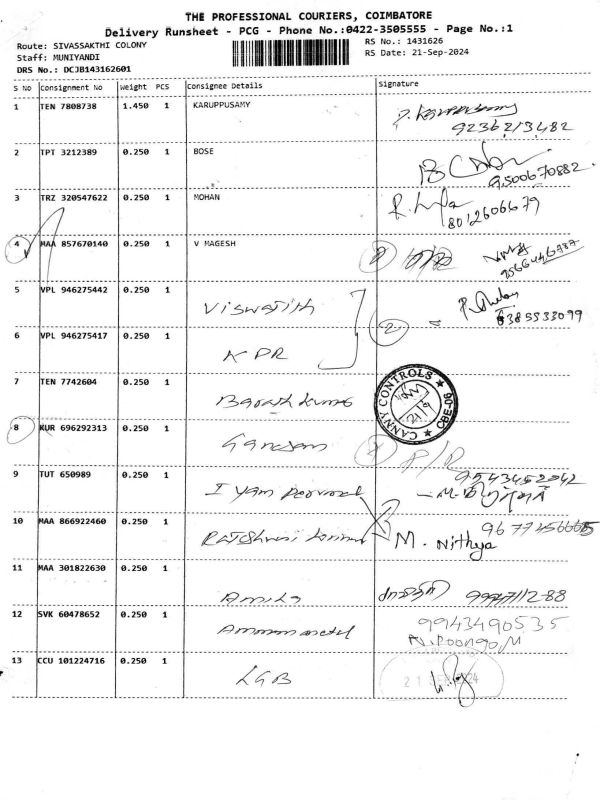 THE PROFESSIONAL COURIERS, COIMBATORE
Delivery Runsheet - PCG - Phone No.:0422-3505555 - Page No.:1
Route: SIVASSAKTHI COLONY
RS No.: 1431626
Staff: MUNIYANDI
RS Date: 21-Sep-2024
DRS No.: DCJB143162601
S No Consignment No Weight PCS Consignee Details Signature
1 TEN 7808738 1.450 1 KARUPPUSAMY
9236213482
2 TPT 3212389 0.250 1 BOSE
9500670882
3 TRZ 320547622 0.250 1 MOHAN
8012606679
4 MAA 857670140 0.250 1 V MAGESH
5 VPL 946275442 0.250 1 Viswajith
2 = 6385333099
6 VPL 946275417 0.250 1 KPR
7 TEN 7742604 0.250 1 Barath kumar
CANNY CONTROLS CBE-06
21/9
8 KUR 696292313 0.250 1 Ganesan
9 TUT 650989 0.250 1 I yam perumal
9543452042
10 MAA 866922460 0.250 1
M. Nithya
11 MAA 301822630 0.250 1
12 SVK 60478652 0.250 1
9943490535
N. Poongo
13 CCU 101224716 0.250 1 LGB